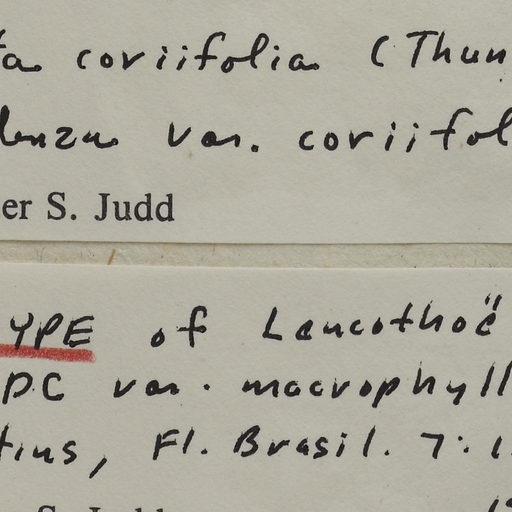 ta coriifolia (Thun
denza var. coriifol
er S. Judd
YPE of Leucothoë
DC var. macrophyll
tius, Fl. Brasil. 7: 1
S. Judd